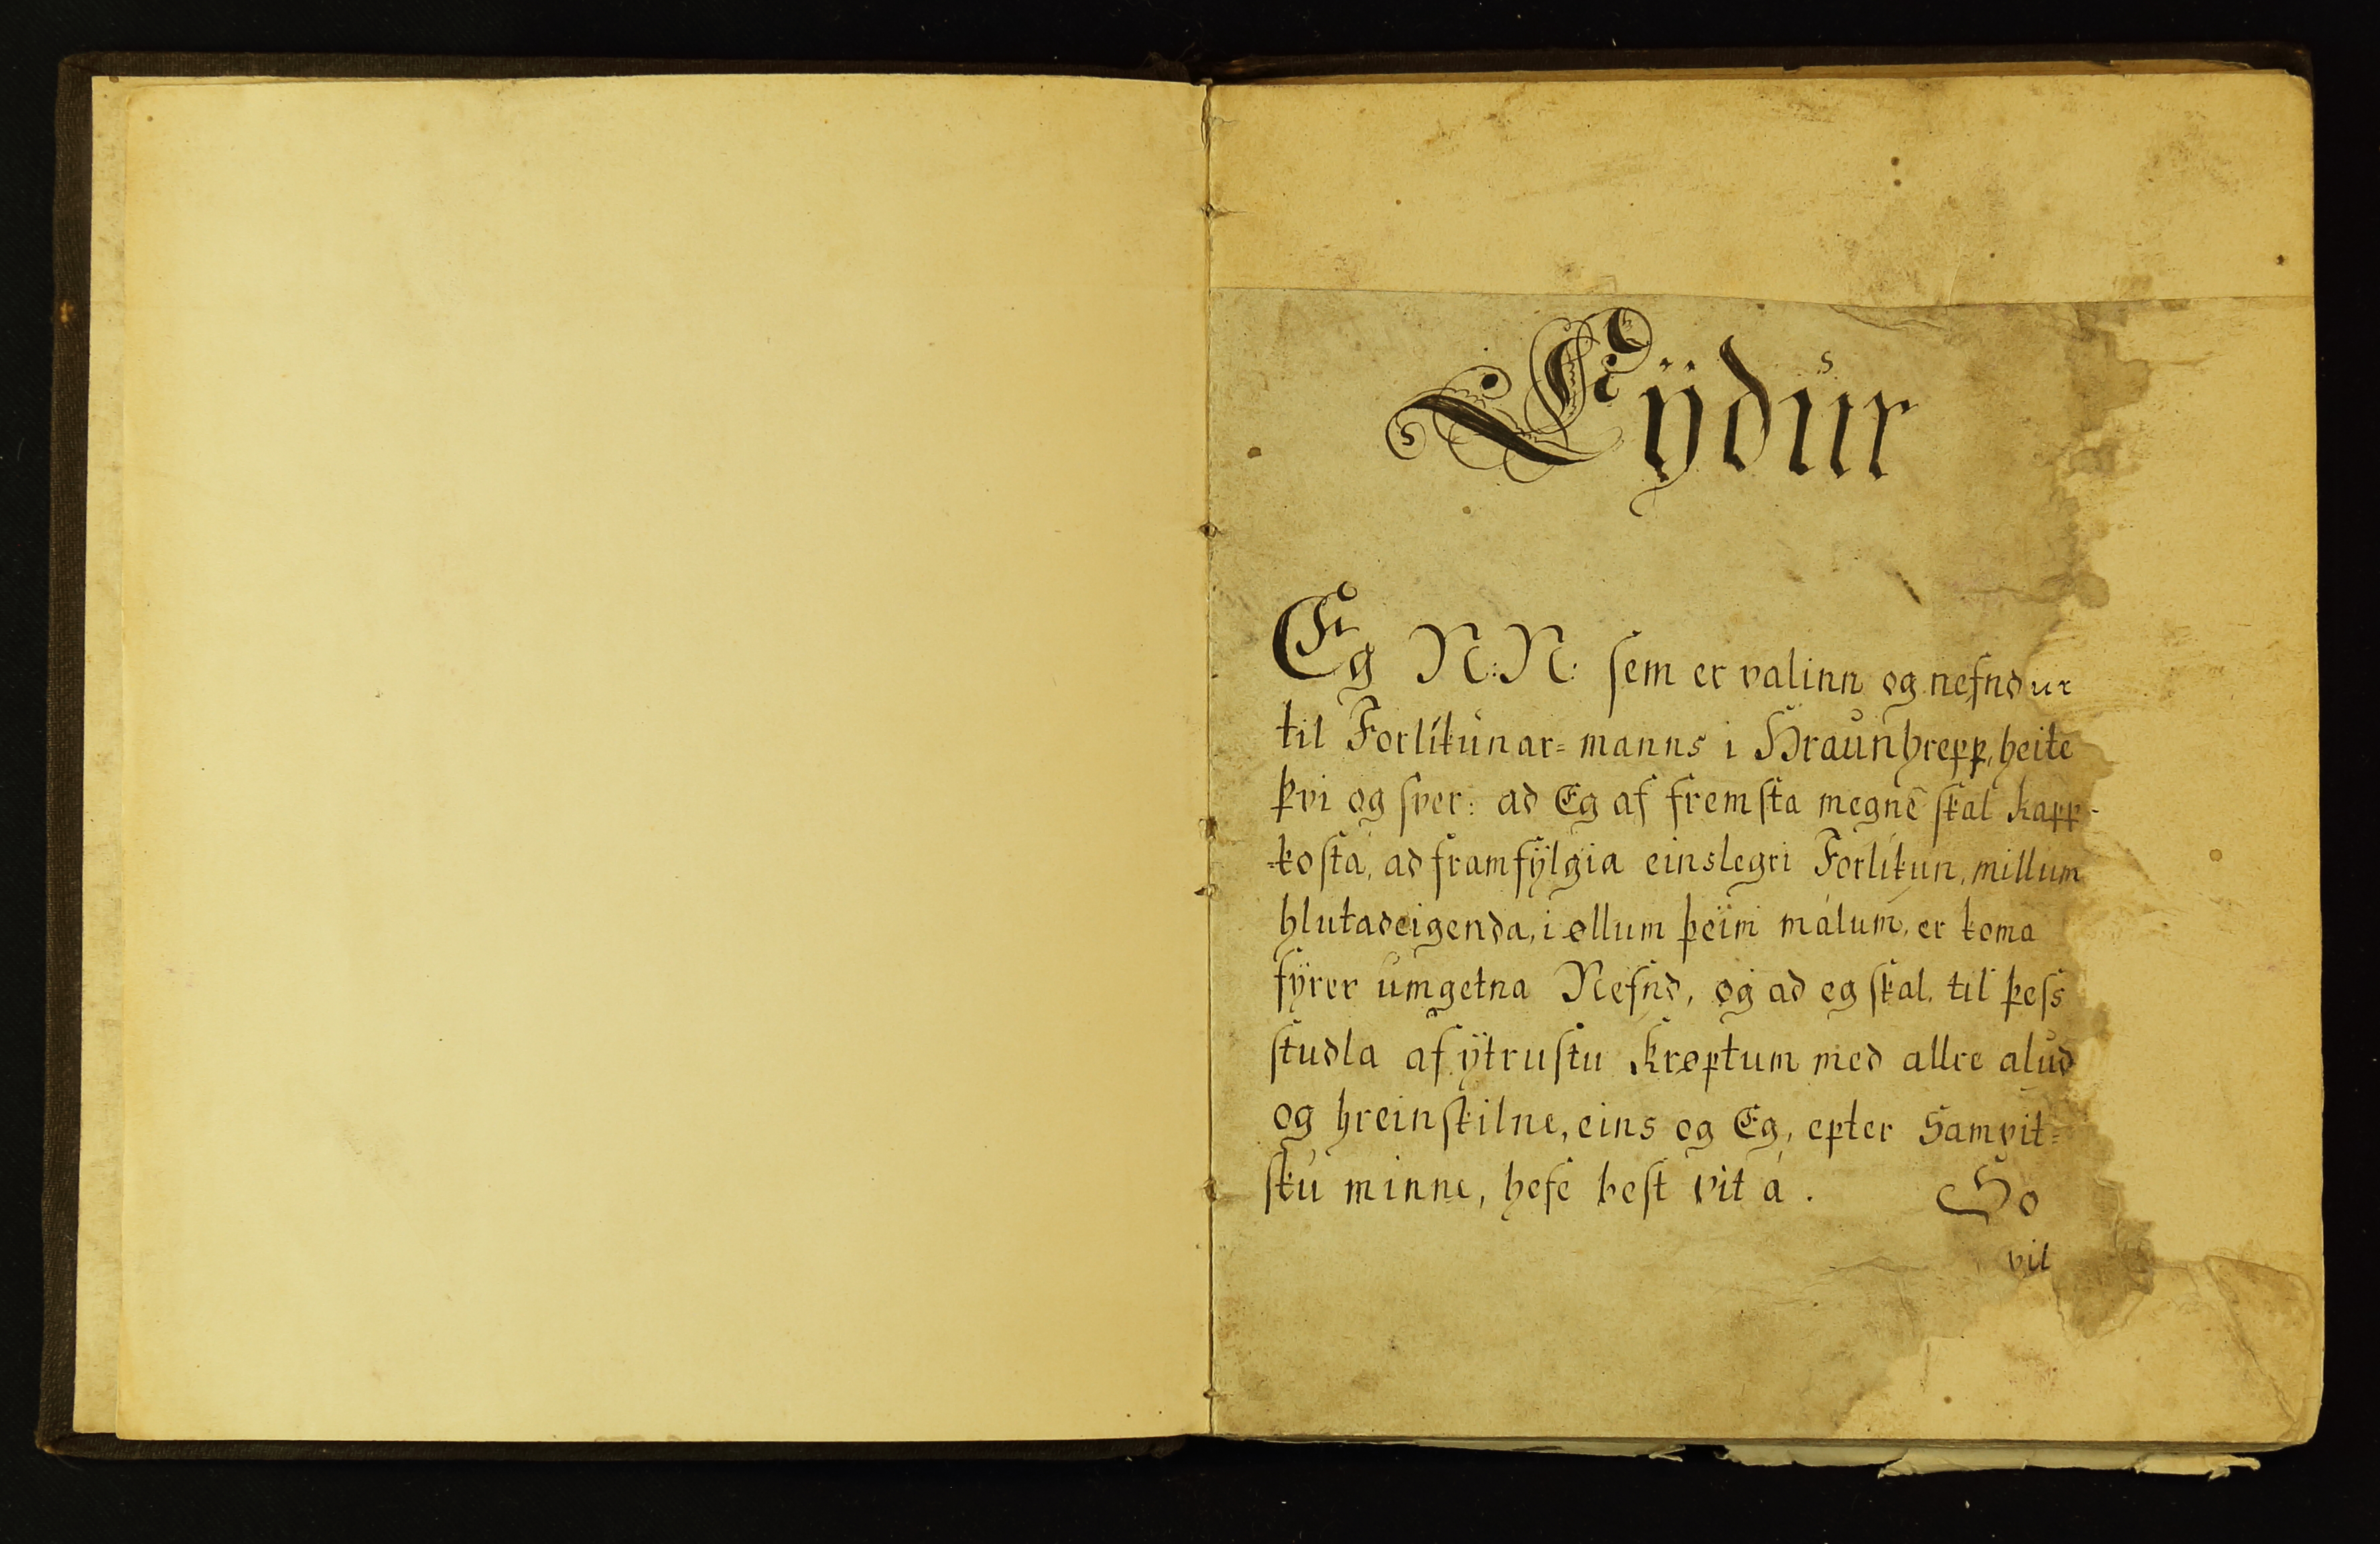 Eÿdur
Eg N: N: ſem er valinn og nefndur
til Forlíkunar= manns i Hraunhrepp, heite
þvi og ſver: ad Eg af fremſta megne ſkal kapp-
=koſta, ad framfÿlgia einslegri Forlikun, millum
hlutadeigenda, i øllum þeim málum, er koma
fÿrer umgetna Nefnd, og ad eg ſkal, til þeſs
ſtudla af ÿtruſtu krøptum med allre alud
og hreinſkilne, eins og Eg, epter Samvit=
ſku minne, hefe beſt vit á. So
vil